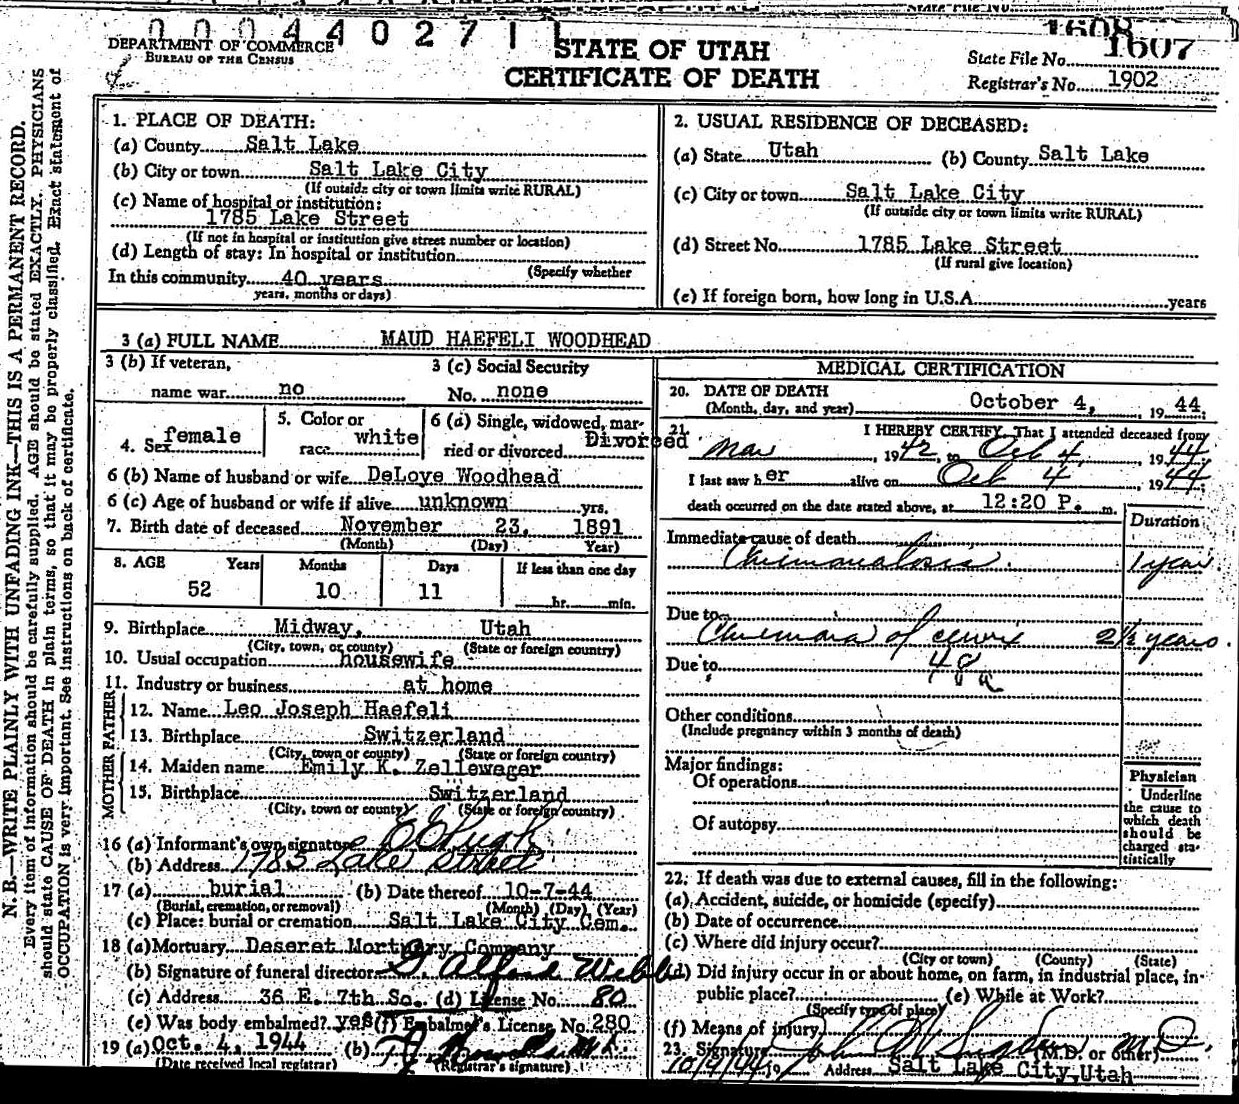 0004402711
DEPARTMENT OF COMMERCE
BUREAU OF THE CENSUS
STATE OF UTAH
CERTIFICATE OF DEATH
1608
1607
State File No.
Registrar's No. 1902
N. B.—WRITE PLAINLY WITH UNFADING INK—THIS IS A PERMANENT RECORD.
Every item of information should be carefully supplied. AGE should be stated EXACTLY. PHYSICIANS
should state CAUSE OF DEATH in plain terms, so that it may be properly classified. Exact statement of
OCCUPATION is very important. See instructions on back of certificate.
1. PLACE OF DEATH:
(a) County Salt Lake
(b) City or town Salt Lake City
(If outside city or town limits write RURAL)
(c) Name of hospital or institution:
1785 Lake Street
(If not in hospital or institution give street number or location)
(d) Length of stay: In hospital or institution
(Specify whether
In this community 40 years
years, months or days)
2. USUAL RESIDENCE OF DECEASED:
(a) State Utah (b) County Salt Lake
(c) City or town Salt Lake City
(If outside city or town limits write RURAL)
(d) Street No. 1785 Lake Street
(If rural give location)
(e) If foreign born, how long in U.S.A. years
3 (a) FULL NAME MAUD HAEFELI WOODHEAD
3 (b) If veteran,
name war no
3 (c) Social Security
No. none
4. Sex female
5. Color or
race white
6 (a) Single, widowed, mar-
ried or divorced Divorced
6 (b) Name of husband or wife DeLoye Woodhead
6 (c) Age of husband or wife if alive unknown yrs.
7. Birth date of deceased November 23, 1891
(Month) (Day) Year)
8. AGE Years Months Days If less than one day
52 10 11 hr. min.
9. Birthplace Midway, Utah
(City, town, or county) (State or foreign country)
10. Usual occupation housewife
11. Industry or business at home
FATHER
12. Name Leo Joseph Haefeli
13. Birthplace Switzerland
(City, town or county) (State or foreign country)
MOTHER
14. Maiden name Emily K. Zelleweger
15. Birthplace Switzerland
(City, town or county) (State or foreign country)
16 (a) Informant's own signature
(b) Address 1785 Lake Street
17 (a) burial (b) Date thereof 10-7-44
(Burial, cremation, or removal) (Month) (Day) (Year)
(c) Place: burial or cremation Salt Lake City Cem.
18 (a) Mortuary Deseret Mortuary Company
(b) Signature of funeral director G. Alford Webb
(c) Address 36 E. 7th So. (d) License No. 80
(e) Was body embalmed? yes (f) Embalmer's License No. 280
19 (a) Oct. 4, 1944 (b)
(Date received local registrar) (Registrar's signature)
MEDICAL CERTIFICATION
20. DATE OF DEATH
(Month, day, and year) October 4, 1944.
21. I HEREBY CERTIFY, That I attended deceased from
Mar, 1942, to Oct 4, 1944
I last saw her alive on Oct 4, 1944
death occurred on the date stated above, at 12:20 P. m.
Duration
Immediate cause of death
1 year
Due to
of cervix 2½ years.
Due to 48a
Other conditions
(Include pregnancy within 3 months of death)
Major findings:
Of operations
Of autopsy
Physician
Underline
the cause to
which death
should be
charged sta-
tistically
22. If death was due to external causes, fill in the following:
(a) Accident, suicide, or homicide (specify)
(b) Date of occurrence
(c) Where did injury occur?
(City or town) (County) (State)
(d) Did injury occur in or about home, on farm, in industrial place, in
public place? (e) While at Work?
(Specify type of place)
(f) Means of injury
23. Signature M.D. (M.D. or other)
10/4/44 19 Address Salt Lake City, Utah